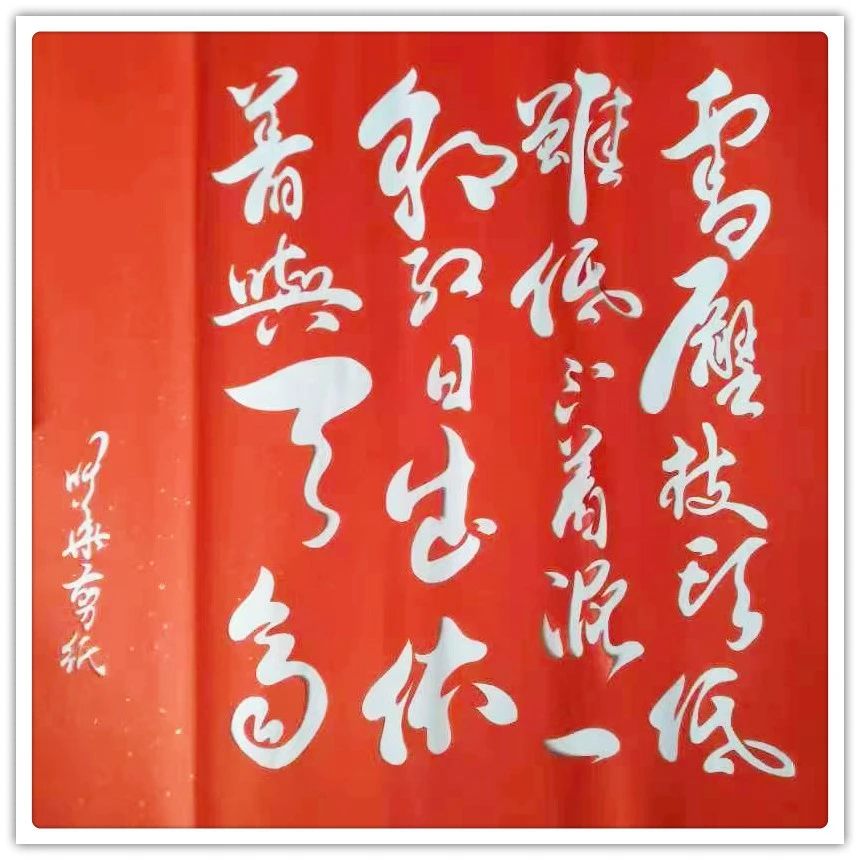 雪壓枝頭低
雖低不着泥一
朝紅日出依
舊與天齊
剪紙